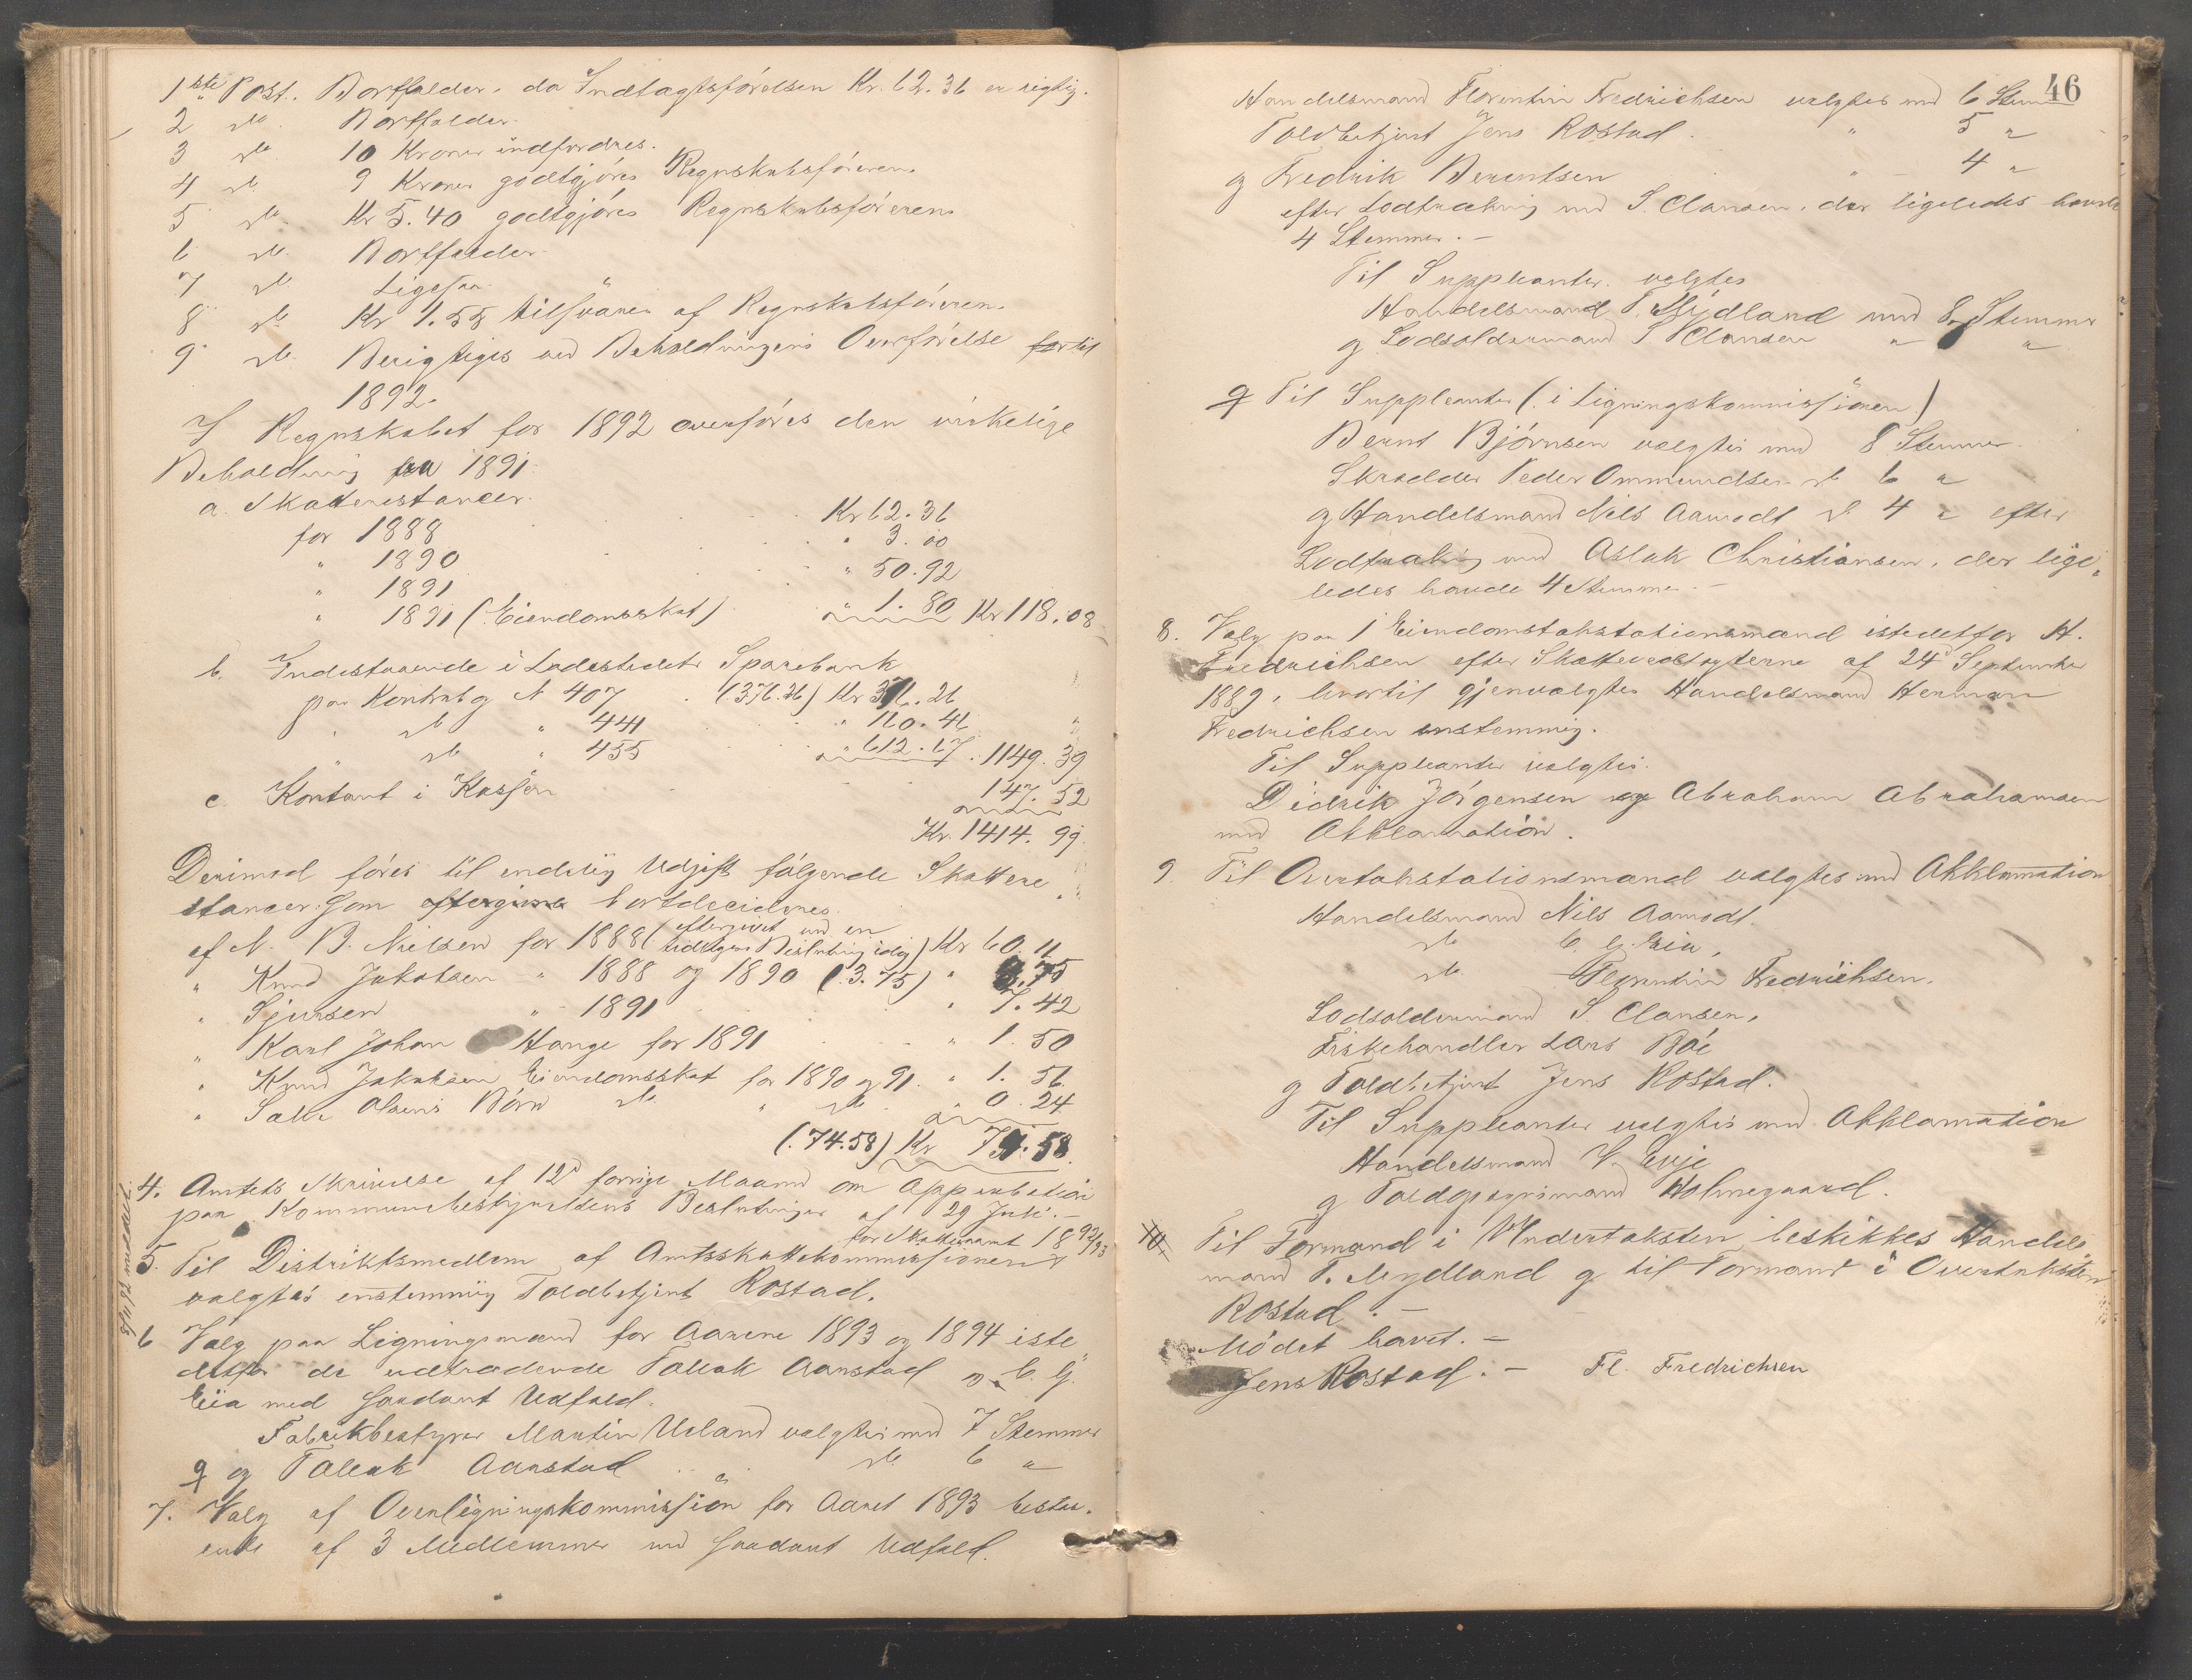 1ste Post. Bortfalder, da Indtagtsförelsen Kr. 62.36 er rigtig.
2 do. Bortfalder.
3 do. 10 Kroner indfordres.
4 do. 9 Kroner godtgjöres Regnskabsföreren.
5 do. Kr 5.40 godtgjöres Regnskabsföreren
6 do. Bortfalder.
7 do. Ligesaa.
8 do. Kr 1.55 tilsvares af Regnskabsföreren.
9 do. Berigtiges ved Beholdningens Overförelse til
1892.
I Regnskabet for 1892 overföres den virkelige
Beholdning fra 1891:
a. Skatterestancer.
for 1888 Kr 62.36
" 1890 " 3.00
" 1891 " 50.92
" 1891 (Eiendomsskat) " 1.80 Kr 118.08
b. Indestaaende i Ladestedets Sparebank
paa Kontrabog N 407 (376.26) Kr 376.26
" do " 441 " 160.46
" do " 455 " 612.67 . 1149.39
c. Kontant i Kassen 147.52
Kr. 1414.99
Derimod föres til endelig Udgift fölgende Skattere
stancer som bortdecideres.
af N. B. Nielsen for 1888 (eftergivet ved en
tidligere Beslutning) Kr 60.11
" Knud Jakobsen " 1888 og 1890 (3.75) " 3.75
" Sjursen " 1891 " 7.42
" Karl Johan Hauge for 1891 " 1.50
" Knud Jakobsen Eiendomsskat for 1890 og 91. " 1.56
" Salve Olsens Börn do. " do. " 0.24
(74.58) Kr 74.58
4. Amtets Skrivelse af 12te forrige Maaned om Approbation
paa Kommunebestyrelsens Beslutninger af 29 Juli.
for Skatteaaret 1892/93
5. Til Distriktsmedlem af Amtsskattekommissionen
valgtes enstemmig Toldbetjent Rostad.
6 Valg paa Ligningsmænd for Aarene 1893 og 1894 iste
detfor de udtrædende Tollak Aanstad og C. G.
Eia med saadant Udfald.
Fabrikbestyrer Martin Ueland valgtes med 7 Stemmer
og Tollak Aanstad do. 6 "
7. Valg af Overligningskommission for Aaret 1893 bestaa-
ende af 3 Medlemmer med saadant Udfald.
46
Handelsmand Florentin Fredrichsen valgtes med 6 Stemmer
Toldbetjent Jens Rostad. " 5 "
og Fredrik Berentsen " 4 "
efter Lodtrækning med S. Clausen, der ligeledes havde
4 Stemmer. -
Til Suppleanter valgtes
Handelsmand T. Mydland med 8 Stemmer
og Lodsoldermand S Clausen " "
Til Suppleanter (i Ligningskommissionen)
Bernt Björnsen valgtes med 8 Stemmer
Skrædder Peder Ommundsen do 6 "
og Handelsmand Nils Aamodt do 4 " efter
Lodtrækning med Aslak Christiansen, der lige-
ledes havde 4 Stemmer. -
8. Valg paa 1 Eiendomstakstationsmand istedetfor H.
Fredrichsen efter Skattevedtægterne af 24de September
1889, hvortil gjenvalgtes Handelsmand Herman
Fredrichsen enstemmig.
Til Suppleanter valgtes.
Didrik Jörgensen og Abraham Abrahamsen
med Akklamation.
9. Til Overtakstationsmænd valgtes med Akklamation
Handelsmand Nils Aamodt.
do C. G. Eia,
do Florentin Fredrichsen.
Lodsoldermand S. Clausen,
Fiskehandler Lars Böe
og Toldbetjent Jens Rostad.
Til Suppleanter valgtes med Akklamation
Handelsmand Evje
og Toldopsynsmand Holmegaard.
10. Til Formand i Undertaksten beskikkes Handels
mand T. Mydland og til Formand i Overtaksten
Rostad. -
Mödet hævet. -
Jens Rostad. - Fl. Fredrichsen